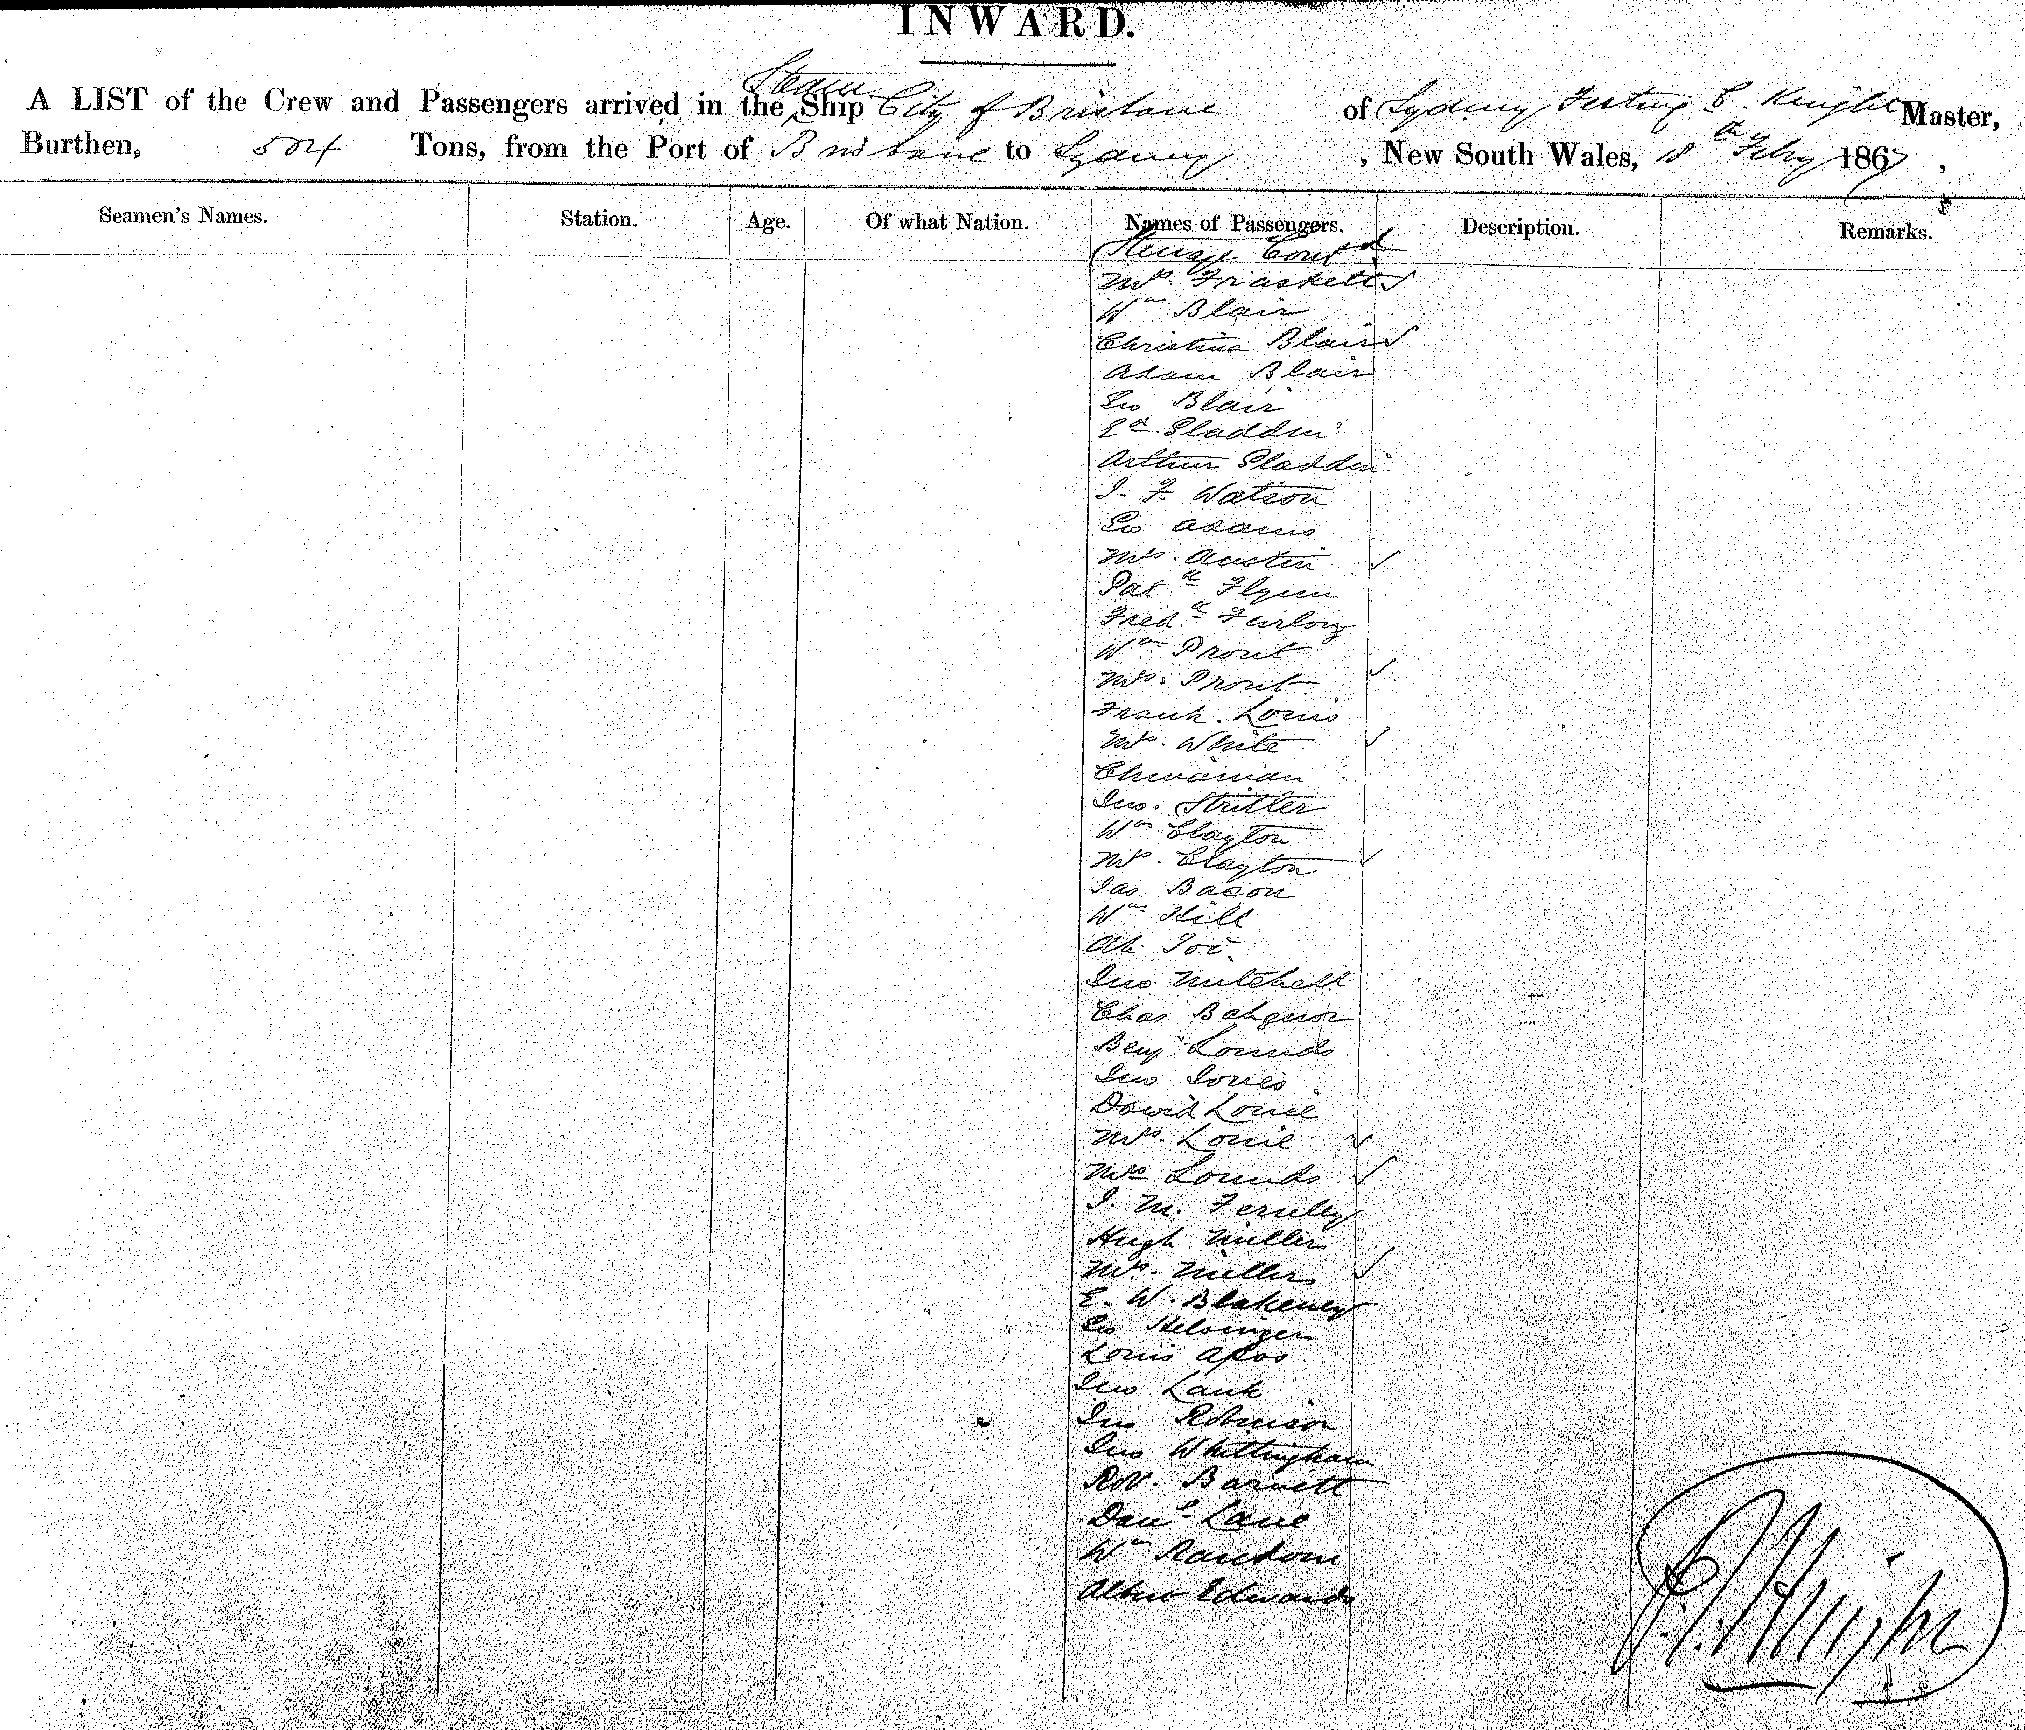 INWARD.
A LIST of the Crew and Passengers arrived in the Steam Ship City of Brisbane of Sydney Knight Master,
Burthen, 504 Tons, from the Port of Brisbane to Sydney, New South Wales, 18th Feby 1867,
Seamen's Names. Station. Age. Of what Nation. Names of Passengers. Description. Remarks.
Mrs. Friaskett
Wm Blair
Christina Blair
Adam Blair
Geo Blair
Ed. Gladden
Arthur Gladden
J. F. Watson
Geo Adams
Mrs. Austin
Patk Flynn
Fredk Furlong
Wm Prout
Mrs. Prout
Frank. Louis
Mrs. White
Chinaman
Jno. Stritter
Wm Clayton
Mrs. Clayton
Jas Bacon
Wm Hill
Ah.
Jno Mitchell
Chas
Benj Lounds
Jno Jones
David Louie
Mrs. Louie
Mrs Lounds
J. M. Fernley
Hugh Miller
Mrs. Miller
E. W. Blakeney
Geo
Louis
Jno Lank
Jno Robinson
Jno Whittingham
Robt. Barnett
Danl Lane
Wm Randome
Albert Edwards
Knight